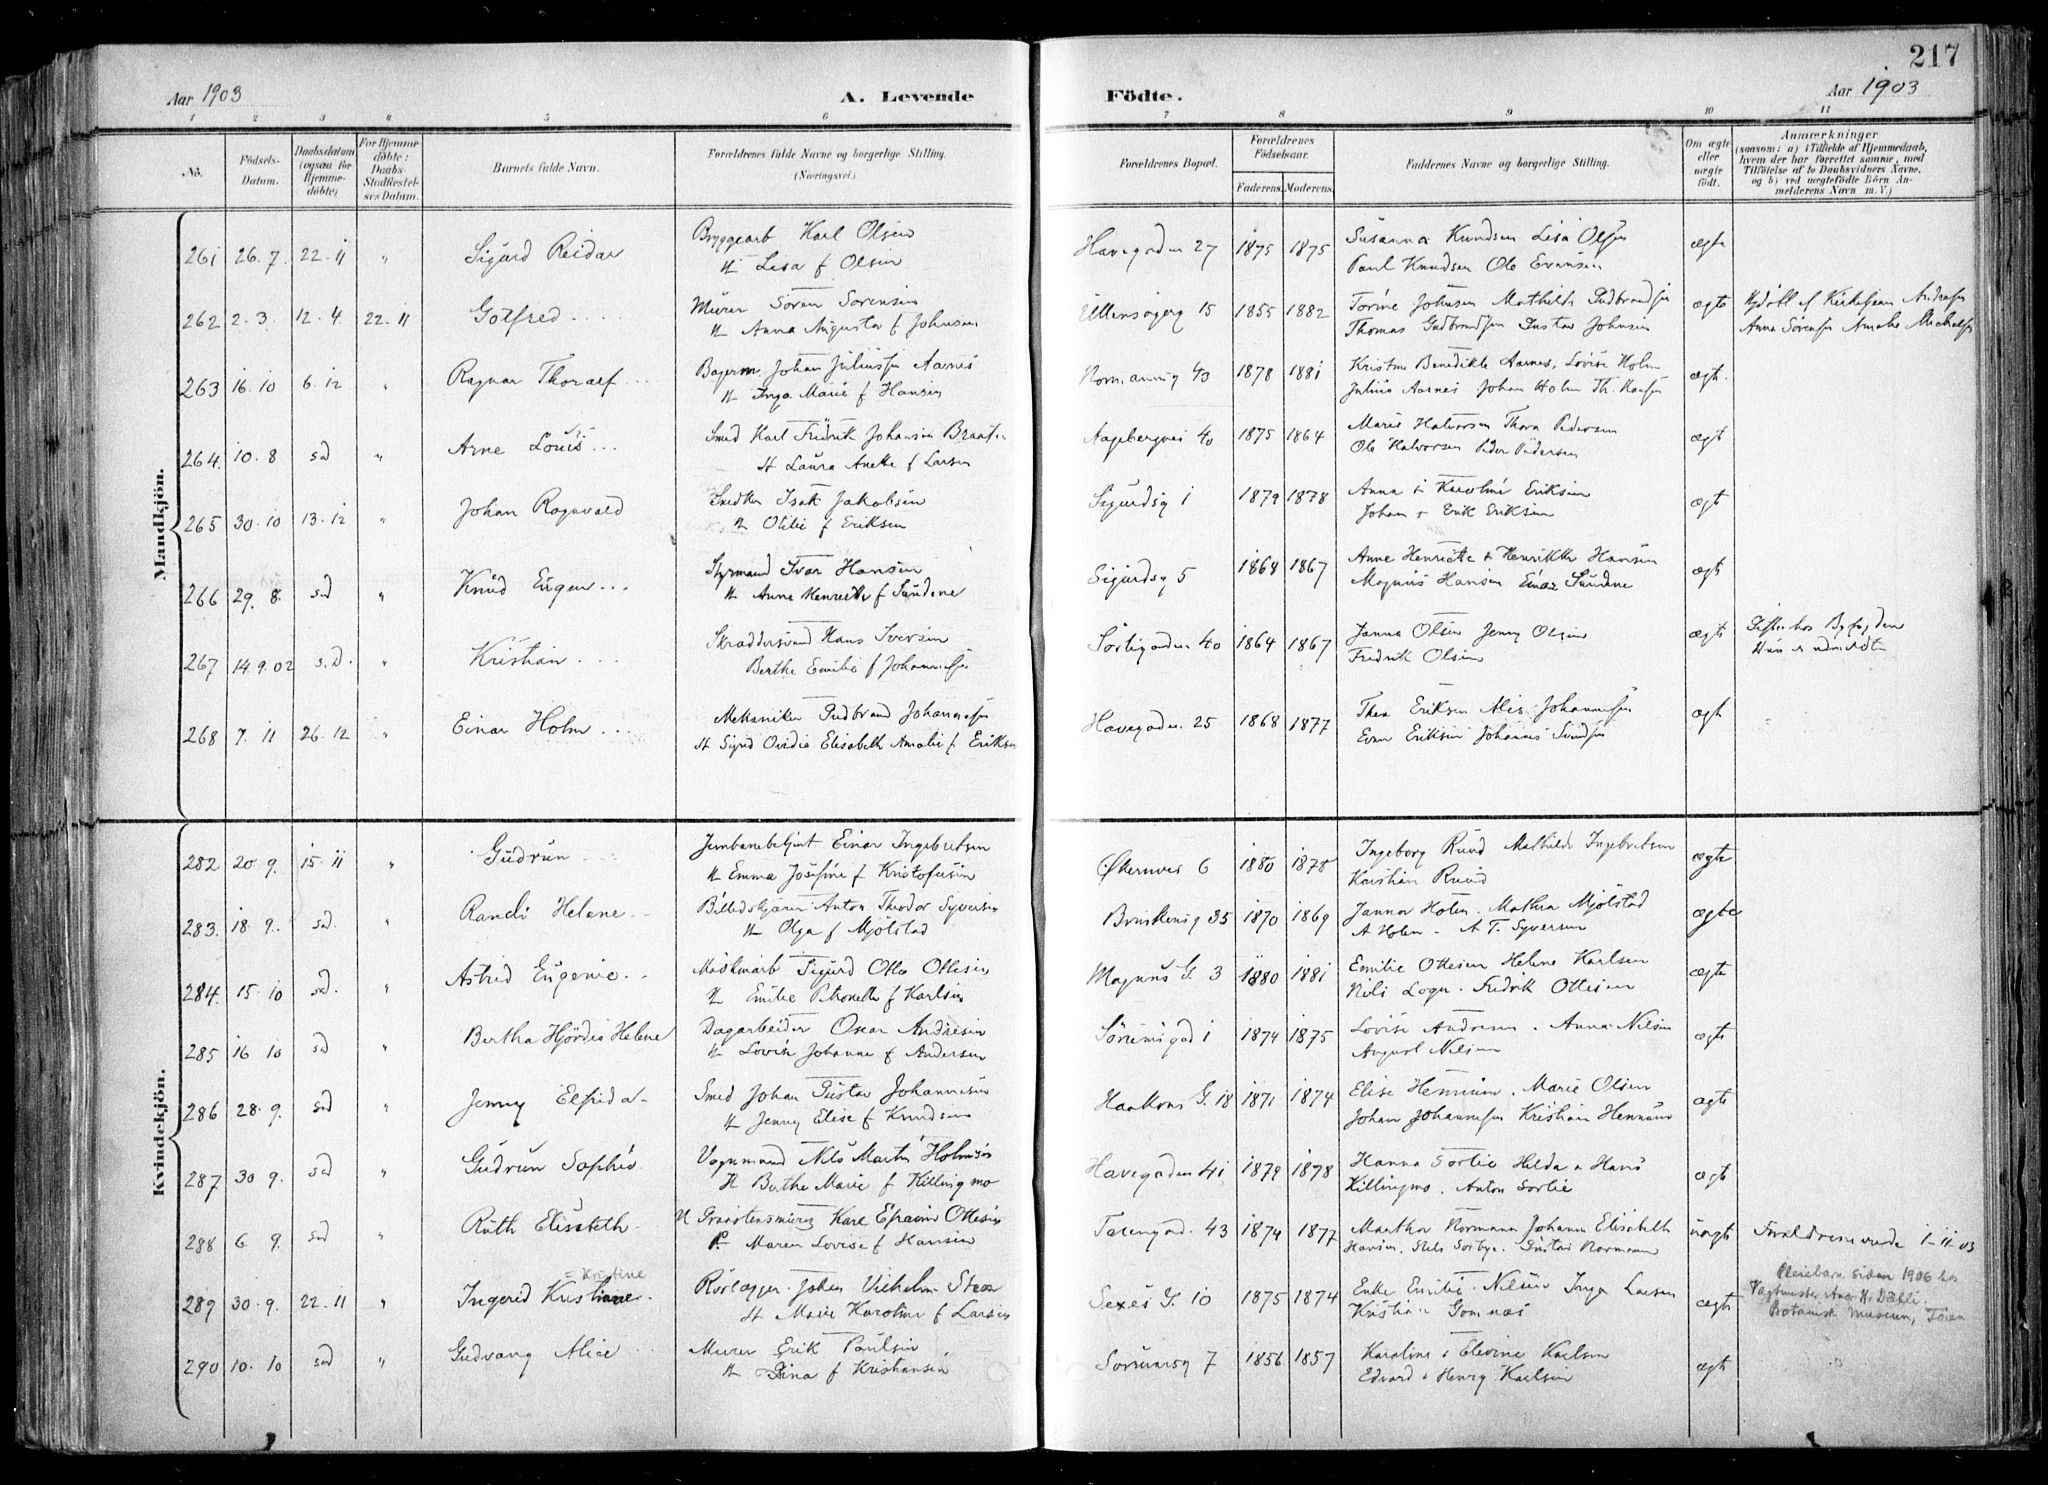 217
Aar 1903
A. Levende
Födte.
Aar 1903
1 2 3 4 5 6 7 8 9 10 11
No.
Födsels-Datum.
Daabsdatum (ogsaa for Hjemmedöbte)
For Hjemmedöbte: Daabs-Stadfæstelses Datum.
Barnets fulde Navn.
Forældrenes fulde Navne og borgerlige Stilling. (Næringsvei.)
Forældrenes Bopæl.
Forældrenes Födselsaar.
Faderens.
Moderens.
Faddernes Navne og borgerlige Stilling.
Om ægte eller uægte födt.
Anmærkninger (saasom: a) i Tilfælde af Hjemmedaab, hvem der har forrettet samme, med Tilföielse af to Daabsvidners Navne, og b) ved uægtefödte Börn Anmelderens Navn m. V.)
Mandkjön.
261 26.7. 22.11 " Sigurd Reidar Bryggearb Karl Olsen Havegaden 27 1875 1875 Susanna Knudsen Lisa Olsen ægte
H Lisa f Olsen Paul Knudsen Ole Evensen
262 2.3. 12.4 22.11 Gotfred Murer Søren Sørensen Ullensagerg 15 1855 1882 Torine Johnsen Mathilde Gudbrandsen ægte
H Anna Augusta f Johnsen Thomas Gudbrandsen Gustav Johnsen Anna Sørensen
263 16.10 6.12 " Ragnar Thoralf Johan Juliussen Aarnes Normannsg 43 1878 1881 Kristine Benedikte Aarnes, Lovise Holm ægte
H Inga Marie f Hansen Julius Aarnes Johan Holm Th. Hansen
264. 10.8 sd " Arne Louis Smed Karl Fredrik Johansen Braaten Aagebergvei 40 1875 1864 Marie Halvorsen Thora Pedersen ægt
H Laura Anette f Larsen Ole Halvorsen Peder Pedersen
265 30.10 13.12 " Johan Ragnvald Snedker Isak Jakobsen Sigurdsg 1 1879 1878 Anna & Karoline Eriksen ægt
H Otilie f Eriksen Johan & Erik Eriksen
266 29.8. sd " Knud Eugen Styrmand Ivar Hansen Sigurdsg 5 1864 1867 Anne Henriette & Henrikke Hansen ægt
H Anne Henriette f Sundene Magnus Hansen Einar Sundene
267 14.9.02 s.d. " Kristian Skræddersvend Hans Iversen Sørligaden 40 1864 1867 Janna Olsen Jenny Olsen ægt
Berthe Emilie f Johannesen Fredrik Olsen Hun er udmeldt
268 7.11 26.12 " Einar Holm Mekaniker Gudbrand Johannesen Havegaden 25 1868 1877 Thea Eriksen Alis Johannesen ægt
H Sigrid Ovidia Elisabeth Amalie f Eriksen Even Eriksen Johannes Svendsen
Kvindekjön.
282 20.9. 15.11 " Gudrun Jernbanebetjent Einar Ingebretsen Økernvei 6 1880 1878 Ingeborg Ruud Mathilde Ingebretsen ægte
H Emma Josefine f Kristofersen Kristian Ruud
283. 18.9. sd. " Randi Helene Billedskjærer Anton Theodor Syversen Brinkensg 35 1870 1869 Janna Holen. Mathea Mjölstad ægte
H Olga f Mjölstad A Holen - A T. Syversen
284. 15.10 sd. " Astrid Eugenie Maskinarb Sigurd Otto Ottesen Magnus G. 3 1880 1881 Emilie Ottesen Helene Karlsen ægte
H Emilie Petronelle f Karlsen Nils Logn. Fredrik Ottesen
285 16 10 sd " Bertha Hjördis Helene Dagarbeider Oscar Andresen Sörumsgad 1 1874 1875 Lovise Andresen. Anna Nilsen ægte
H Lovise Johanne f Andersen August Nilsen
286 28.9. sd " Jenny Elfrida Smed Johan Gustav Johannesen Haakons G. 18 1871 1874 Elise Hennum. Marie Olsen ægte
H Jenny Elise f Knudsen Johan Johannesen Kristian Hennum
287 30 9. sd " Gudrun Sophie Vognmand Nils Martin Holmsen Havegaden 41 1879 1878 Hanna Sørlie Hilda & Hans ægt
H Berthe Marie f Killingmo Killingmo. Anton Sørlie
288 6 9. sd " Ruth Elisabeth Karl Efraim Ottesen Taiengad. 43 1874 1877 Martha Normann Johanne Elisabeth uægte Forældrene viede 1-11-03
Maren Lovise f Hansen Hansen. Gustav Normann
= Kristine
289 30.9. 22.11 " Ingerid Kristiane Rørlægger Johan Vilhelm Steen Sexes G. 10 1875 1874 Enke Emilie Nilsen Inga Larsen ægte Pleiebarn siden 1906 hos
H Marie Karoline f Larsen Kristian Gomnæs Vagtmester H. Dæhli. Botanisk Museum, Tøien
290 10.10 sd " Gudvang Alice Murer Erik Paulsen Sörumsg 7 1856 1857 Karoline & Elevine Karlsen ægt
H Dina f Kristiansen Edvard & Henry Karlsen